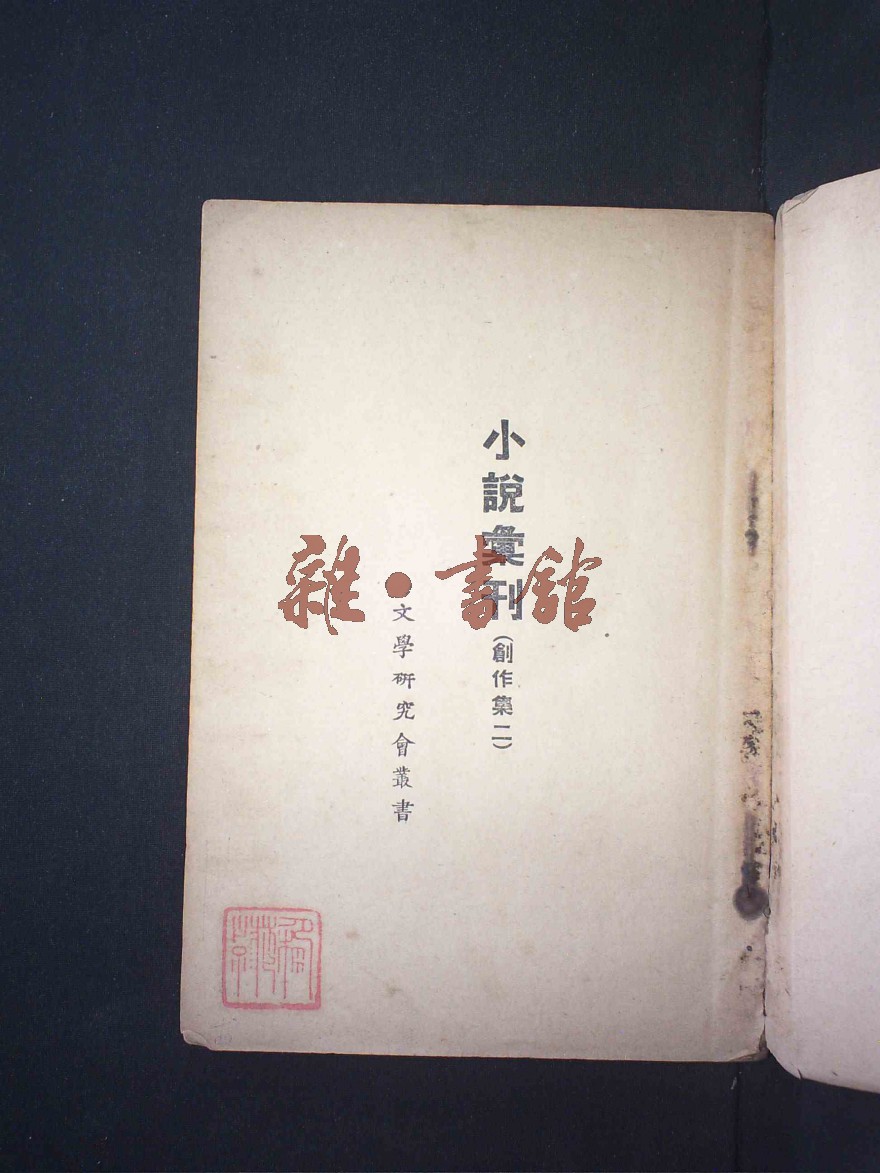 小說彙刊（創作集二）
文學硏究會叢書
雜·書館